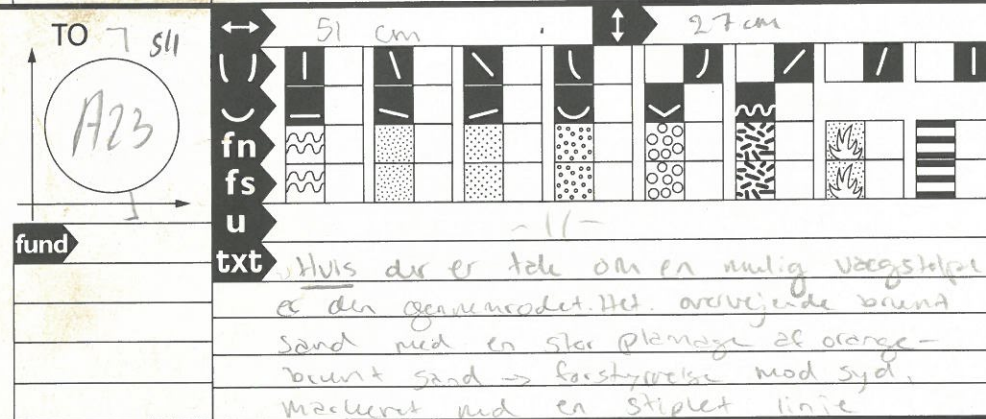 TO 7 S11
51 cm 27 cm
A23
fn
fs
u -11-
fund
txt Huis der er tale om en mulig vægstolpe
er den gennemrodet. Het. overvejende brunt
sand med en stor plamage af orange-
brunt sand -> forstyrrelse mod syd,
markeret med en stiplet linie